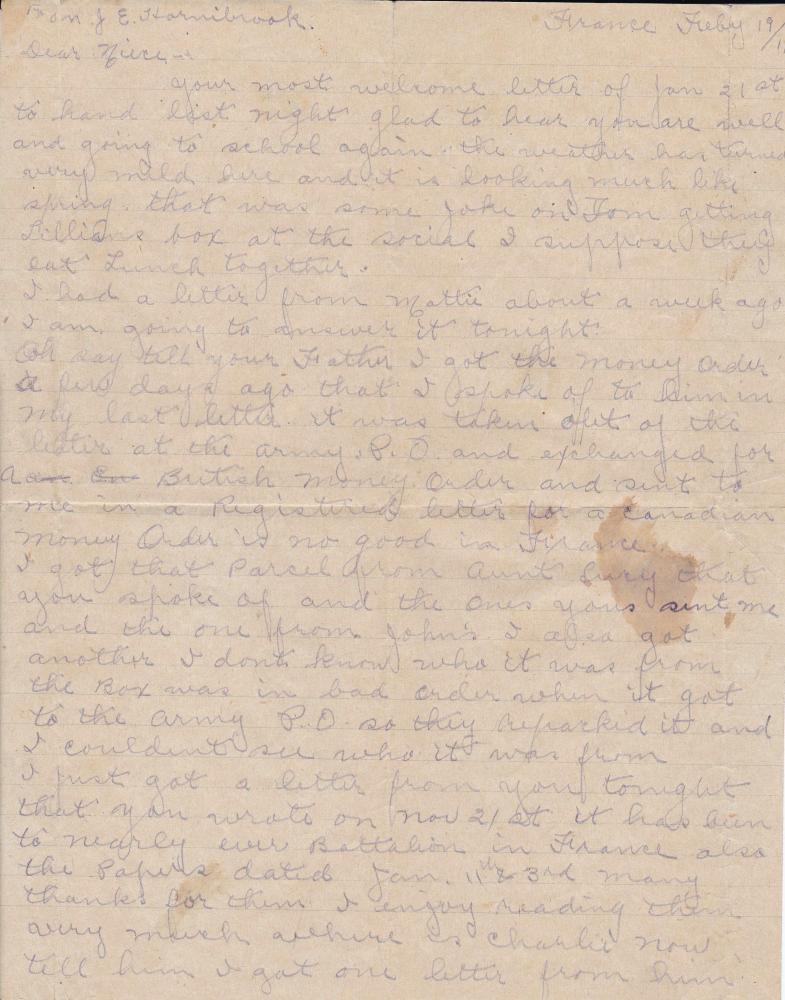 From J E. Hornibrook. France Feby 19/1
Dear Niece—:
your most welcome letter of Jan 21st
to hand last night glad to hear you are well
and going to school again. the weather has turned
very mild here and it is looking much like
spring. that was some joke on Tom getting
Lillians box at the social I suppose they
eat Lunch together.
I had a letter from Mattie about a week ago
I am going to answer it tonight.
Ooh say tell your Father I got the Money Order
a few days ago that I spoke of to him in
my last letter. it was taken out of the
letter at the army. P. O. and exchanged for
a British Money Order and sent to
me in a Registired letter for a canadian
Money Order is no good in France.
I got that Parcel from Aunt Lucy that
you spoke of and the ones yous sent me
and the one from John's I also got
another I dont know who it was from
the Box was in bad order when it got
to the army P. O. so they repacked it and
I couldent see who it was from
I just got a letter from you tonight
that you wrote on Nov 21st it has been
to nearly ever Battalion in France also
the Papers dated Jan. 11th & 3rd many
thanks for them I enjoy reading them
very much where is Charlie now
tell him I got one letter from him.